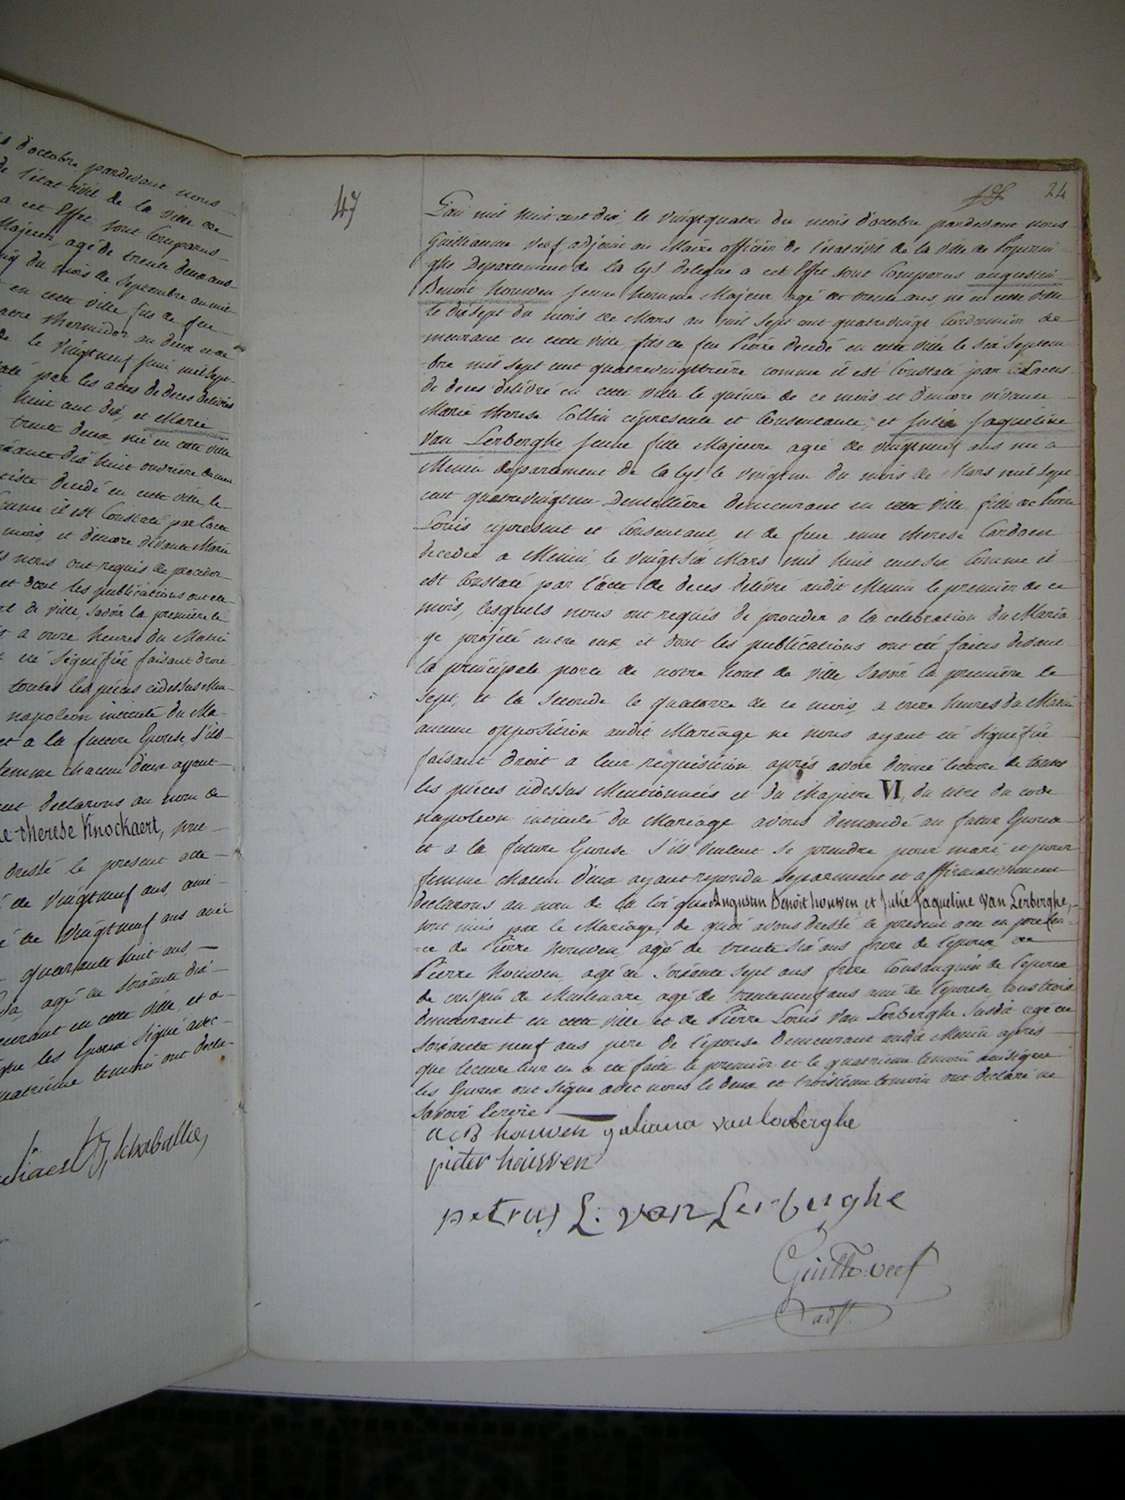 s d'octobre pardevant nous
de l'état civil de la ville de
a cet Effet sont Comparus
Majeur, agé de trente deux ans
du mois de Septembre an mil
en cette ville fils de feu
thermidor an deux
de le vingtneuf juin mil sept
par les actes de deces delivrés
huit cent dix, et Marie
trente deux née en cette ville
decedé en cette ville le
comme il est Constaté par l'acte
mois et d'encore vivante Marie
nous ont requis de proceder
et dont les publications ont été
de ville, savoir la première le
a onze heures du Matin
été signifiée faisant droit
toutes les pièces cidessus Men-
napoleon intitulé du Ma-
et a la future Epouse, s'ils
femme chacun d'eux ayant
declarons au nom de
therese Knockaert, sont
dressé le present acte
de vingtneuf ans, ami
de vingtneuf ans ami
quarante huit ans
agé de soixante dix
demeurant en cette ville, et a-
que les Epoux signé avec
quatrieme temoin ont decla-
47
24
L'an mil huit cent dix le vingtquatre du mois d'octobre pardevant nous
Guillaume Veuf adjoint au Maire officier de l'etat civil de la ville de Poperin-
ghe Departement de la Lys delegué a cet Effet sont Comparus augustin
Benoit houwen jeune homme Majeur agé de trente ans né en cette ville
le dixsept du mois de Mars an mil sept cent quatrevingt Cordonnier de-
meurant en cette ville fils de feu Pierre decedé en cette ville le six Septem-
bre mil sept cent quatrevingttreize comme il est Constaté par l'actes
de deces delivré en cette ville le quinze de ce mois et d'encore vivante
Marie therese Collin cipresente et Consentante, et Julie Jaqueline
Van Lerberghe jeune fille Majeure agée de vingtneuf ans née a
Menin departement de la Lys le vingtun du mois de Mars mil sept
cent quatrevingtun Dentellière demeurant en cette ville fille de Pierre
Louis cipresent et Consentant, et de feue anne therese Cardoen
decedée a Menin le vingtsix Mars mil huit cent six Comme il
est Constaté par l'acte de deces delivré audit Menin le premier de ce
mois, lesquels nous ont requis de proceder a la celebration du Maria-
ge projeté entre eux et dont les publications ont été faites devant
la principale porte de notre hotel de ville savoir la première le
sept, et la Seconde le quatorze de ce mois, a onze heures du Matin
aucune opposition audit Mariage ne nous ayant été signifiée
faisant droit a leur requisition après avoir donné lecture de toutes
les pièces cidessus Mentionnées et du Chapitre VI, du titre du code
napoleon intitulé du Mariage avons demandé au futur Epoux
et a la future Epouse S'ils veulent se prendre pour mari et pour
femme chacun d'eux ayant repondu separement et affirmativement
declarons au nom de la loi que Augustin Benoit houwen et Julie Jaqueline van Lerberghe,
sont unis par le Mariage, de quoi avons dressé le present acte en presen-
ce de Pierre houwen agé de trente six ans frere de l'epoux de
Pierre houwen agé de soixante sept ans frère Consanguin de l'epoux
de crispin de Meulenare agé de trenteneuf ans ami de l'epouse tous trois
demeurant en cette ville et de Pierre Louis Van Lerberghe susdit agé de
soixante neuf ans père de l'epouse demeurant audit Menin après
que lecture leur en a été faite le premier et le quatrieme temoin ainsi que
les Epoux ont signé avec nous le deux et troisieme temoin ont declaré ne
savoir Ecrire
A B houwen juliana van lerberghe
pieter houwen
petrus L. van Lerberghe
Guill. Veuf
adj.